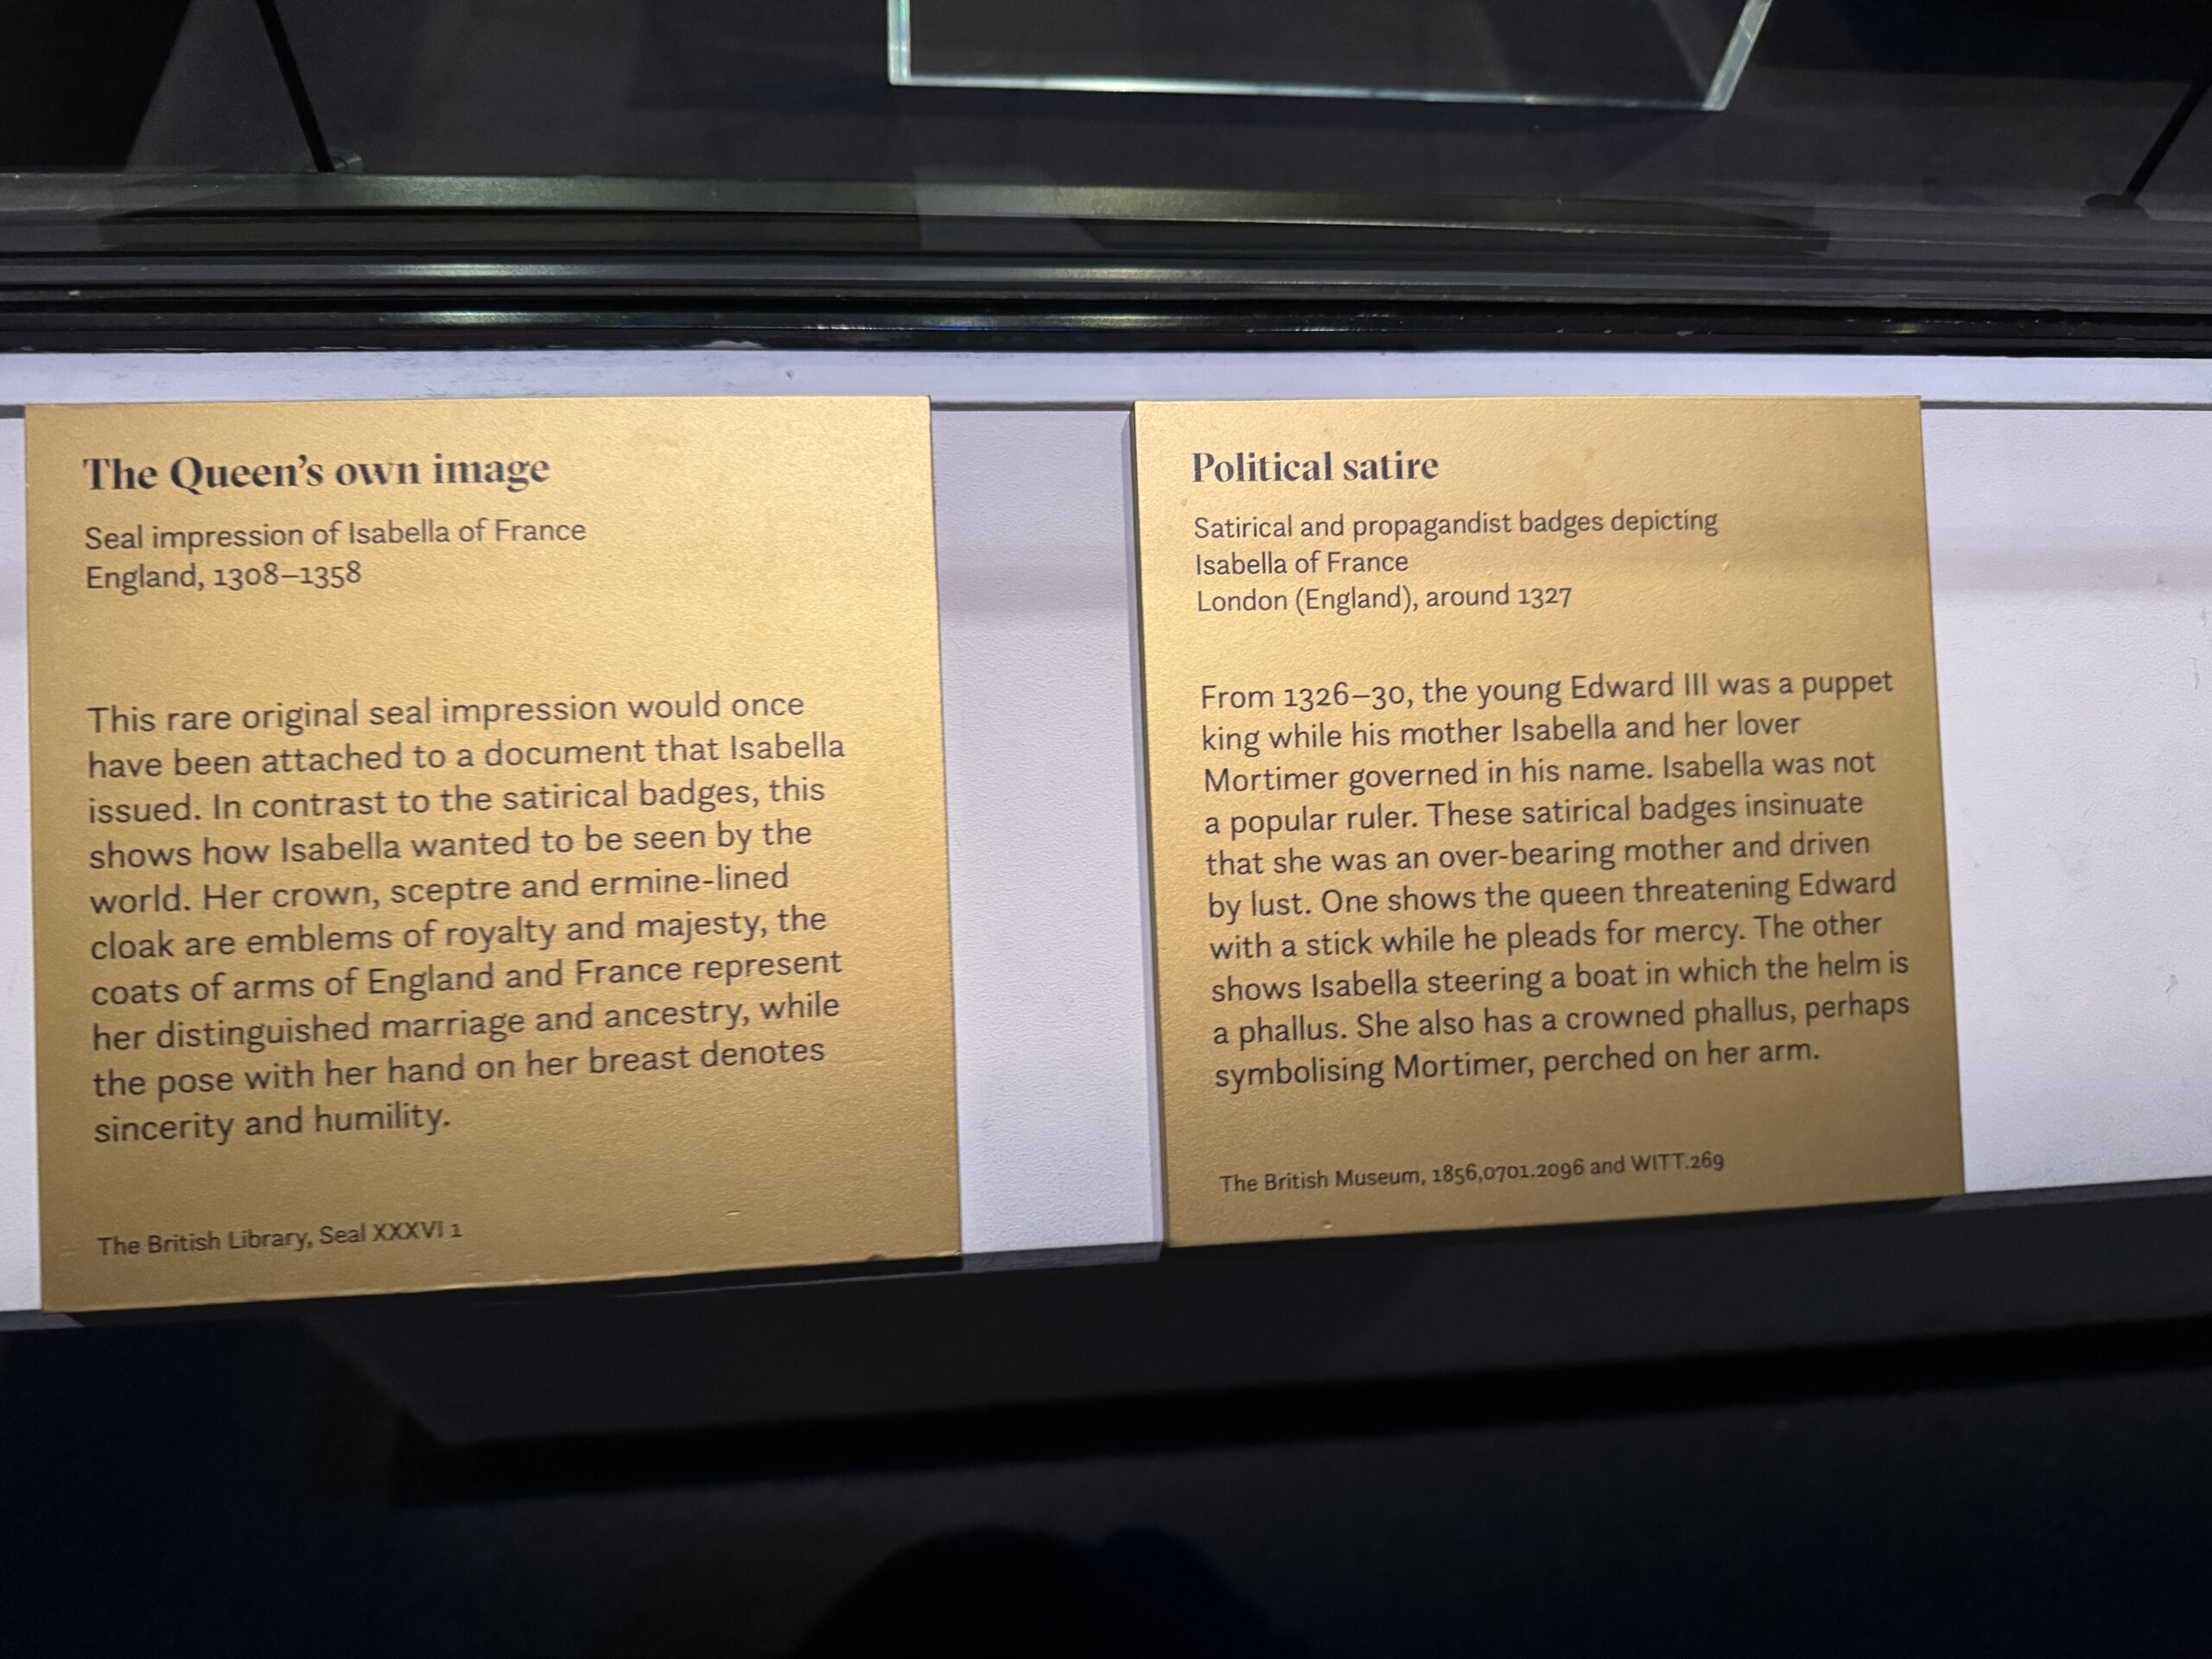 The Queen's own image
Seal impression of Isabella of France
England, 1308–1358
This rare original seal impression would once
have been attached to a document that Isabella
issued. In contrast to the satirical badges, this
shows how Isabella wanted to be seen by the
world. Her crown, sceptre and ermine-lined
cloak are emblems of royalty and majesty, the
coats of arms of England and France represent
her distinguished marriage and ancestry, while
the pose with her hand on her breast denotes
sincerity and humility.
The British Library, Seal XXXVI 1
Political satire
Satirical and propagandist badges depicting
Isabella of France
London (England), around 1327
From 1326–30, the young Edward III was a puppet
king while his mother Isabella and her lover
Mortimer governed in his name. Isabella was not
a popular ruler. These satirical badges insinuate
that she was an over-bearing mother and driven
by lust. One shows the queen threatening Edward
with a stick while he pleads for mercy. The other
shows Isabella steering a boat in which the helm is
a phallus. She also has a crowned phallus, perhaps
symbolising Mortimer, perched on her arm.
The British Museum, 1856,0701.2096 and WITT.269